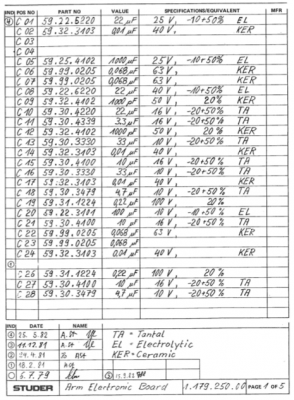 IND POS NO PART NO VALUE SPECIFICATIONS/EQUIVALENT MFR
4 C 01 59.22.5220 22 µF 25 V, -10+50% EL
C 02 59.32.3103 0,01 µF 40 V, KER
C 03
C 04
C 05 59.25.4102 1000 µF 25 V, -10+50% EL
C 06 59.99.0205 0,068 µF 63 V, KER
C 07 59.99.0205 0,068 µF 63 V KER
C 08 59.22.6220 22 µF 40 V, -10+50% EL
C 09 59.32.4102 1000 50 V 20% KER
C 10 59.30.4220 22 µF 16 V, -20+50% TA
C 11 59.30.4339 3,3 µF 16 V, -20+50% TA
C 12 59.32.4102 1000 50 V 20% KER
C 13 59.30.3330 33 µF 10 V, -20+50% TA
C 14 59.32.3103 0,01 µF 40 V, KER
C 15 59.30.4100 10 µF 16 V, -20+50% TA
C 16 59.30.3330 33 µF 10 V, -20+50% TA
C 17 59.32.3103 0,01 µF 40 V, KER
C 18 59.30.3479 4,7 µF 10 V, -20+50% TA
C 19 59.31.1224 0,22 µF 100 V 20%
C 20 59.22.3101 100 µF 10 V, -10+50% EL
C 21 59.30.4100 10 µF 16 V -20+50% TA
C 22 59.99.0205 0,068 µF 63 V, KER
C 23 59.99.0205 0,068 µF
C 24 59.32.3103 0,01 µF 40 V, KER
C 26 59.31.1224 0,22 µF 100 V, 20%
C 27 59.30.4100 10 µF 16 V, -20+50% TA
C 28 59.30.3479 4,7 µF 10 V, -20+50% TA
IND DATE NAME
4 25. 5.82 A.St TA = Tantal
3 11.12.81 A.St EL = Electrolytic
2 KER = Ceramic
1 18.2.81
0 6.7.79
STUDER Arm Electronic Board 1.179.250.00 PAGE 1 OF 5